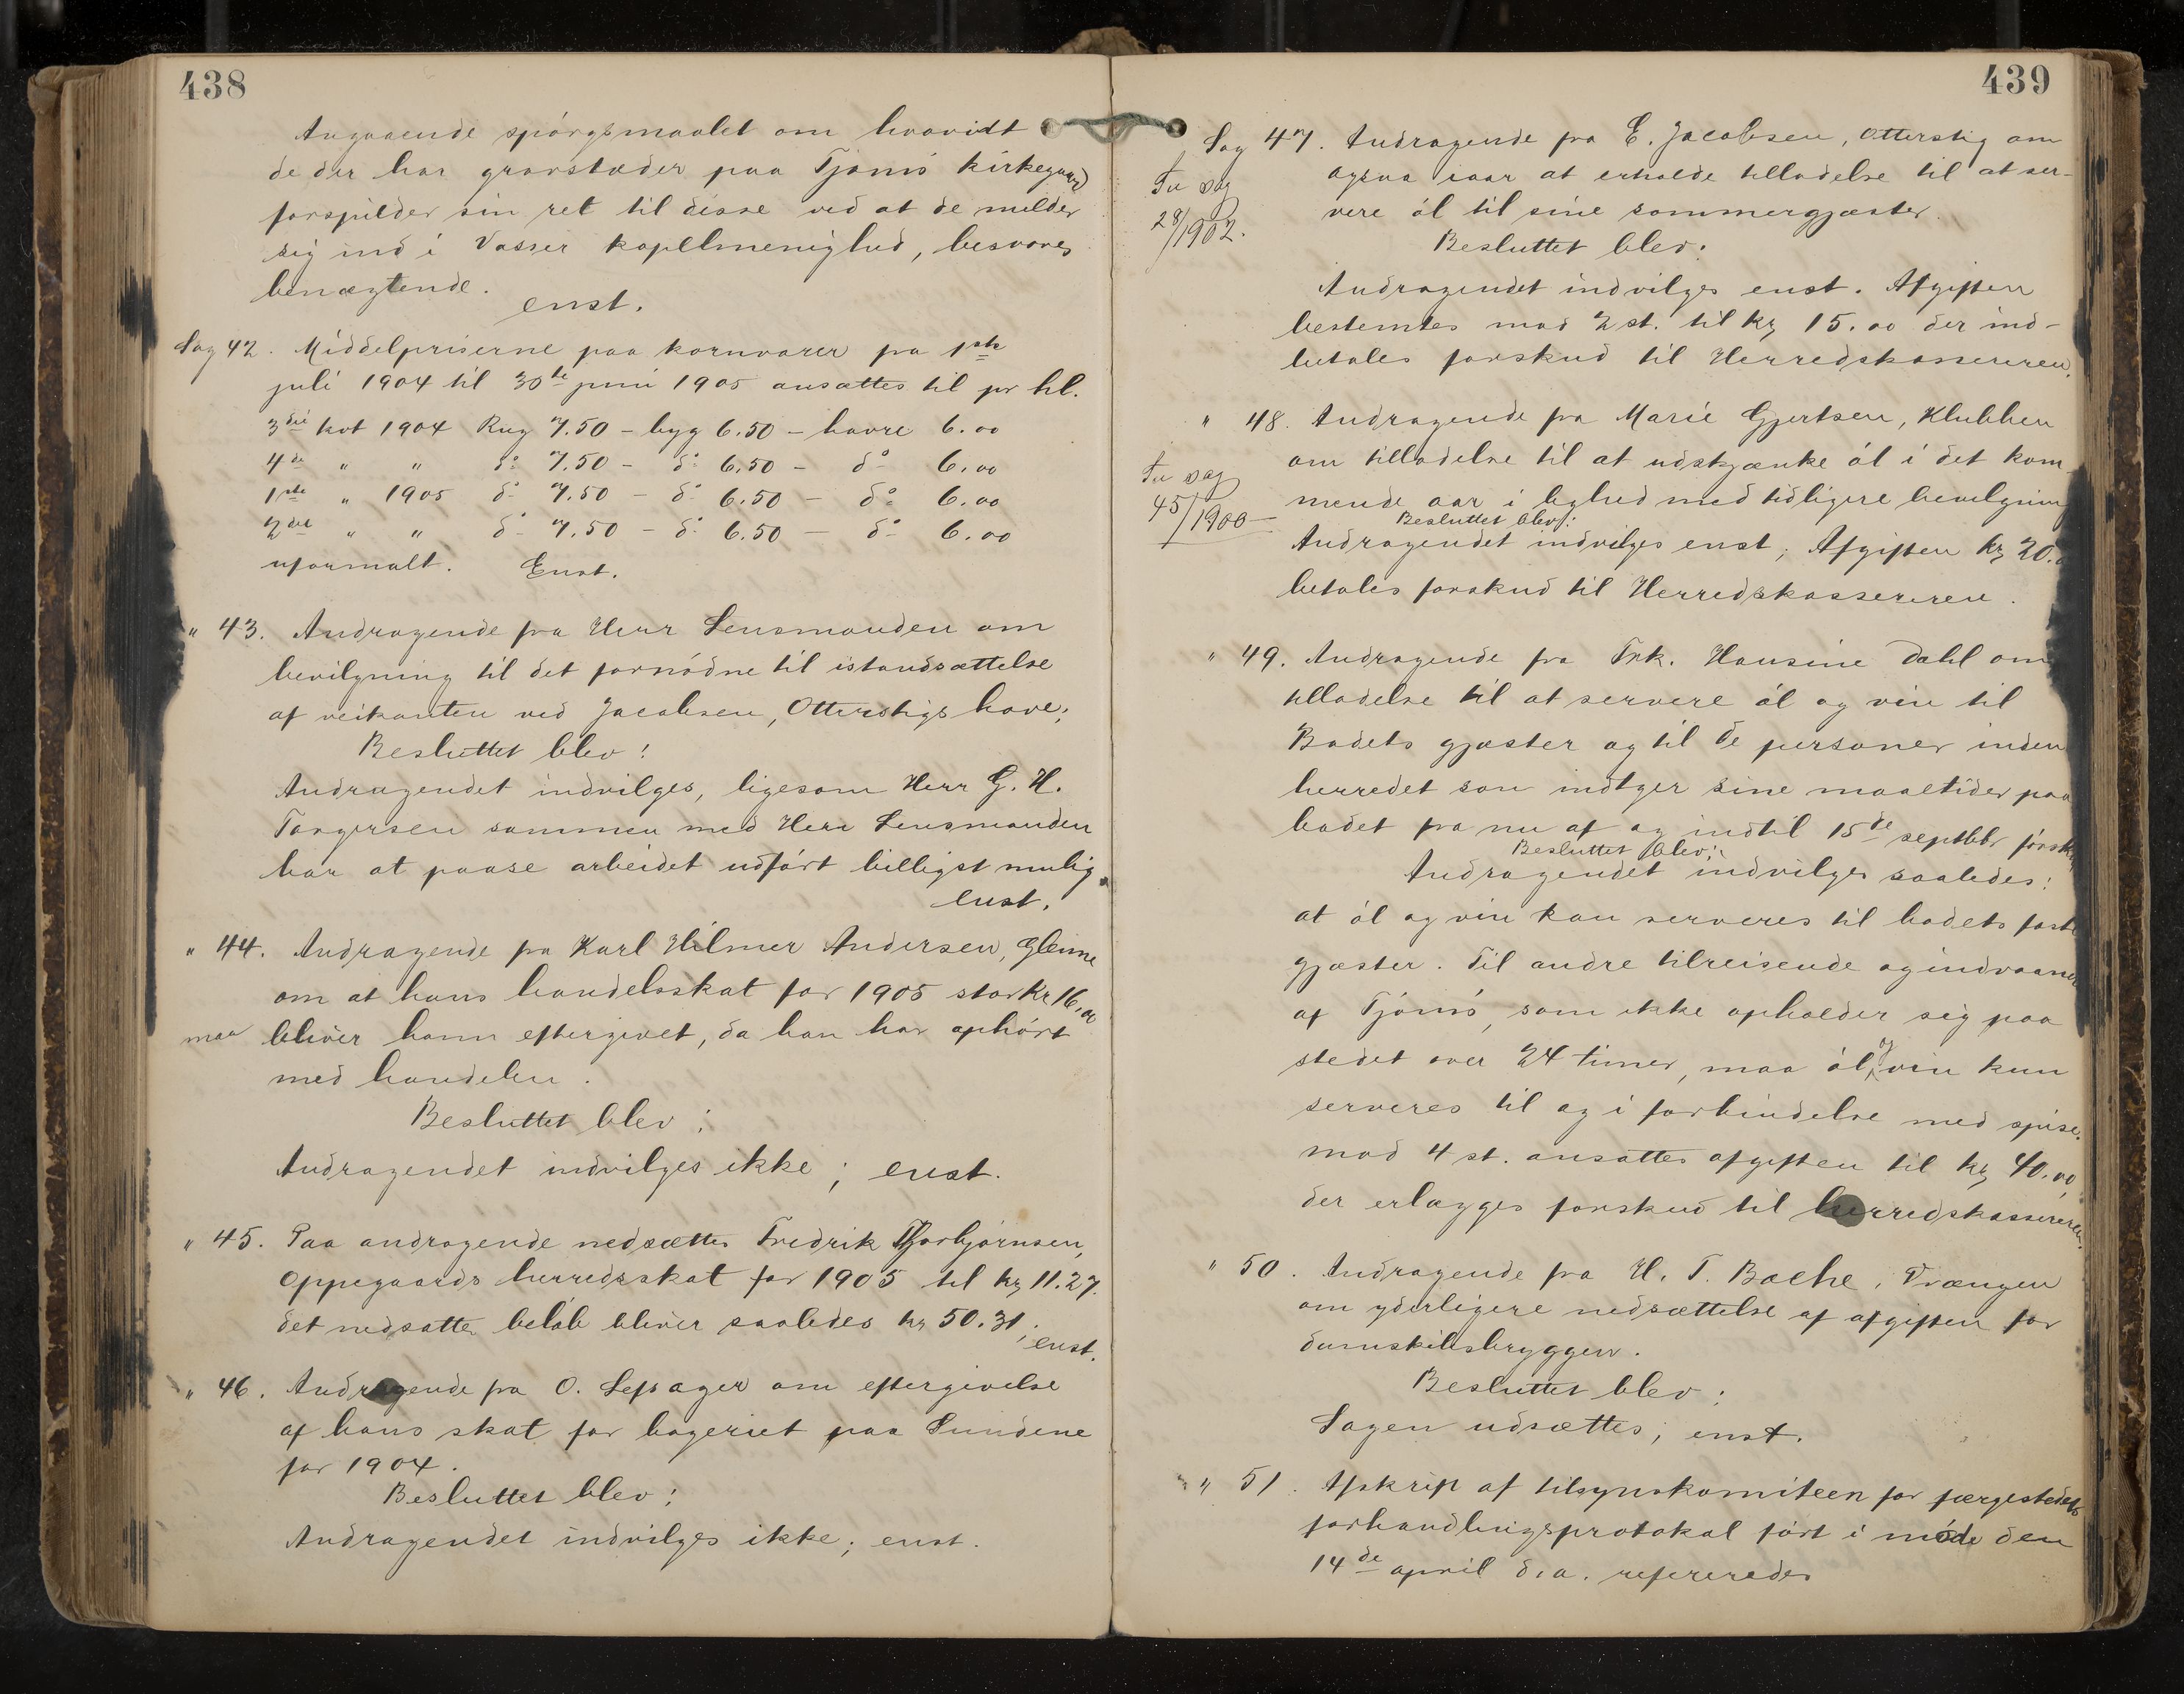 438
Angaaende spørgsmaalet om hvorvidt
de der har gravstæder paa Tjømø kirkegaard
forspilder sin ret til disse ved at de melder
sig ind i Vasser kapellmenighed, besvares
benægtende.
enst.
Sag 42. Middelpriserne paa kornvarer fra 1ste
juli 1904 til 30te juni 1905 ansattes til pr hl.
3die kvt 1904 Rug 7.50 – byg 6.50 – havre 6.00
4de " " do 7.50 – do 6.50 – do 6.00
1ste " 1905 do 7.50 – do 6.50 – do 6.00
2det " " do 7.50 – do 6.50 – do 6.00
uformalt. Enst.
" 43. Andragende fra Herr Lensmanden om
bevilgning til det fornødne til istandsættelse
af veikanten ved Jacobsen, Otterstigs have;
Besluttet blev:
Andragendet indvilges, ligesom Herr G. H.
Torgersen sammen med Herr Lensmanden
har at paase arbeidet udført billigst mulig.
enst.
" 44. Andragende fra Karl Hilmer Andersen, Glenne
om at hans handelsskat for 1905 stor Kr 16,00
maa bliver ham eftergivet, da han har ophørt
med handelen.
Besluttet blev:
Andragendet indvilges ikke; enst.
" 45. Paa andragende nedsættes Fredrik Thorbjørnsen,
Oppegaards herredsskat for 1905 til kr 11.27.
det nedsatte beløb bliver saaledes kr 50.31,
enst.
" 46. Andragende fra O. Lefsager om eftergivelse
af hans skat for bageriet paa Sundene
for 1904.
Besluttet blev:
Andragendet indvilges ikke; enst.
439
Sag 47. Andragende fra E. Jacobsen, Otterstig om
ogsaa iaar at erholde tilladelse til at ser-
Su sag
28/1902.
vere øl til sine sommergjæster.
Besluttet blev:
Andragendet indvilges enst. Afgiften
bestemtes mod 2 st. til kr 15.00 der ind-
betales forskud til Herredskassereren.
" 48. Andragende fra Marie Gjertsen, Klubben
om tilladelse til at udskjænke øl i det kom-
Su sag
45/1900
mende aar i lighed med tidligere bevilgning
Besluttet blev:
Andragendet indvilges enst; Afgiften kr 20.
betales forskud til Herredskassereren.
" 49. Andragende fra Frk. Hansine Dahl om
tilladelse til at servere øl og vin til
Badets gjæster og til de personer inden
herredet som indtger sine maaltider paa
badet fra nu af og indtil 15de septbr førstk
Besluttet blev:
Andragendet indvilges saaledes:
at øl og vin kan serveres til badets faste
gjæster. Til andre tilreisende og indvaanere
af Tjømø, som ikke opholder sig paa
stedet over 24 timer, maa øl og vin kun
serveres til og i forbindelse med spise.
mod 4 st. ansattes afgiften til kr 40.00,
der erlægges forskud til herredskassereren.
" 50. Andragende fra H. T. Bache, Trængen
om yderligere nedsættelse af afgiften for
damskibsbryggen.
Besluttet blev:
Sagen udsættes; enst.
" 51. Afskrift af tilsynskomiteen for færgestedets
forhandlingsprotokol ført i møde den
14de april d.a. refereredes